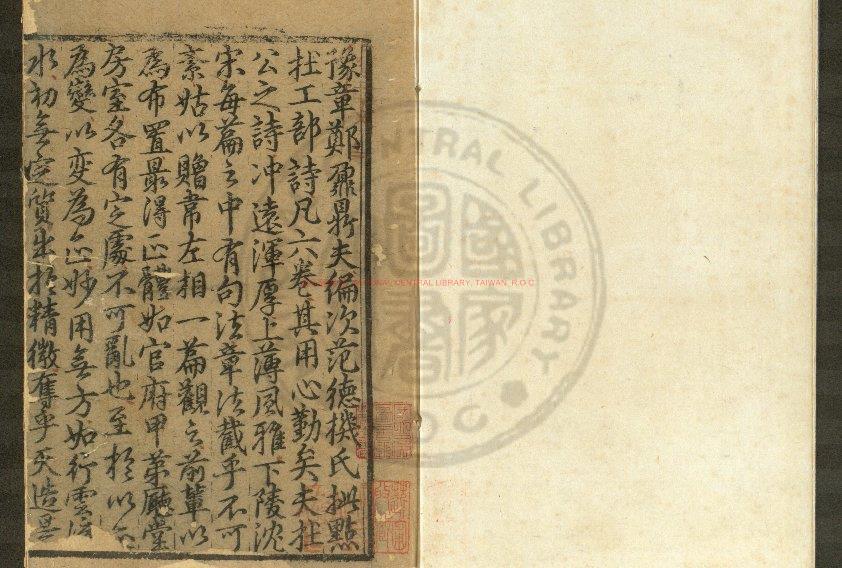 豫章鄭鼐鼎夫編次范德機氏批點
杜工部詩凡六卷其用心勤矣夫杜
公之詩冲遠渾厚上薄風雅下陵沈
宋每篇之中有句法章法截乎不可
紊姑以贈韋左相一篇觀之前輩以
為布置最得正體如官府甲第廳堂
房室各有定處不可亂也至於以正
為變以变為正妙用無方如行雲流
水初無定質出於精微奪乎天造是
CENTRAL LIBRARY
R.O.C
CENTRAL LIBRARY, TAIWAN, R.O.C